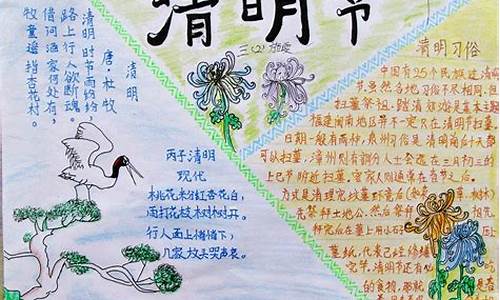 清明节
三（2）
清明
唐·杜牧
清明时节雨纷纷，
路上行人欲断魂。
借问酒家何处有，
牧童遥指杏花村。
丙子清明
现代
桃花米分红杏花白，
雨打花枝树树开。
行人面上
几家放头哭声哀。
清明习俗
中国有25个民族过清明
节，虽然各地习俗不尽相同，但
扫墓祭祖、踏清郊游是基本主
福建闽南地区并不一定只在清明节扫墓
日期一般有两种，泉州习俗是清明前后十天都
可以扫墓，漳州则有部分人士会选在三月初三的
上巳节附近扫墓，客家人则通常在春节之后。
方式是清理完坟墓环境后
先祭拜土地公，然后祭
拜完后在墓上用小石
墓纸，代表已经修缮
完毕，清明节还有吃
的食物，那就